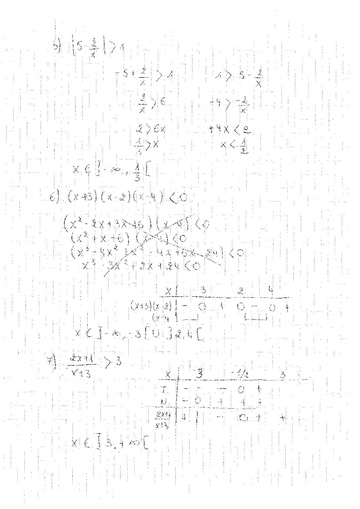 5) |5 - 2/x| > 1
-5 + 2/x > 1    1 > 5 - 2/x
2/x > 6    -4 > -2/x
2 > 6x    +4x < 2
1/3 > x    x < 1/2
x ∈ ]-∞, 1/3[
6) (x+3)(x-2)(x-4) < 0
(x² - 2x + 3x + 6)(x-4) < 0
(x² + x + 6) (x-4) < 0
x³ - 3x² + 2x + 24 < 0
x | 3 2 4
(x+3)(x-2) | - 0 + 0 - 0 +
(x-4
x ∈ ]-∞, -3[ U ]2, 4[
7) 2x+1/x+3 > 3
x | -3 -1/2 3
T. | - - - 0 +
N. | - 0 + + +
2x+1/x+3 | + | - 0 + +
x ∈ ]3, +∞[